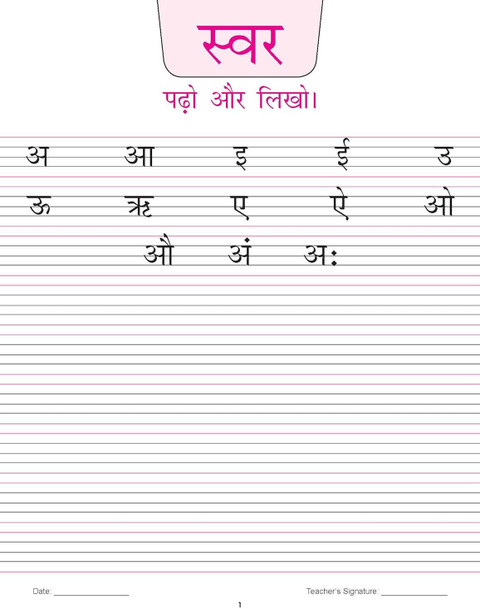 स्वर
पढ़ो और लिखो।
अ आ इ ई उ
ऊ ऋ ए ऐ ओ
औ अं अः
Date: _________________ Teacher's Signature: _______________
1